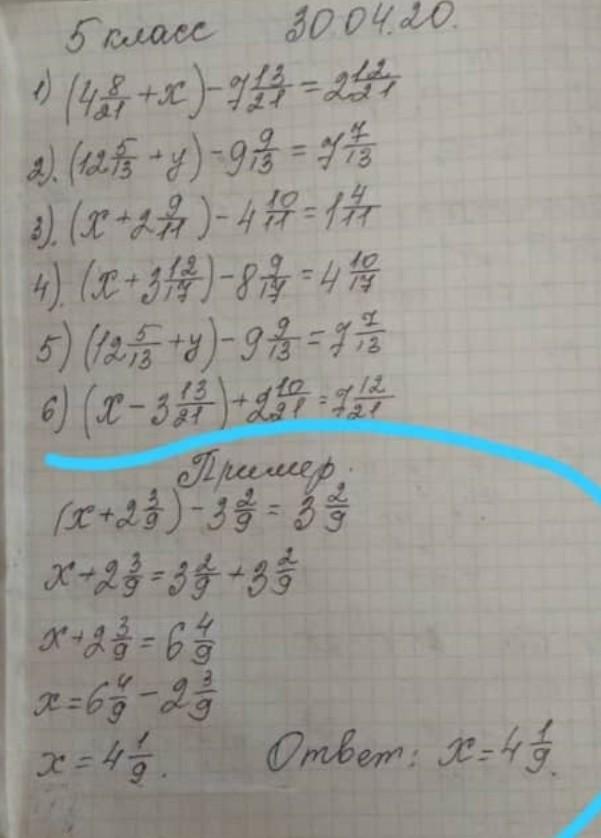 5 класс 30.04.20.
1) (4 8/21 + x) - 7 13/21 = 2 12/21
2). (12 5/13 + y) - 9 9/13 = 7 7/13
3). (x + 2 9/11) - 4 10/11 = 1 4/11
4). (x + 3 12/17) - 8 9/17 = 4 10/17
5) (12 5/13 + y) - 9 9/13 = 7 7/13
6) (x - 3 13/21) + 2 10/21 = 7 12/21
Пример.
(x + 2 3/9) - 3 2/9 = 3 2/9
x + 2 3/9 = 3 2/9 + 3 2/9
x + 2 3/9 = 6 4/9
x = 6 4/9 - 2 3/9
x = 4 1/9. Ответ: x = 4 1/9.